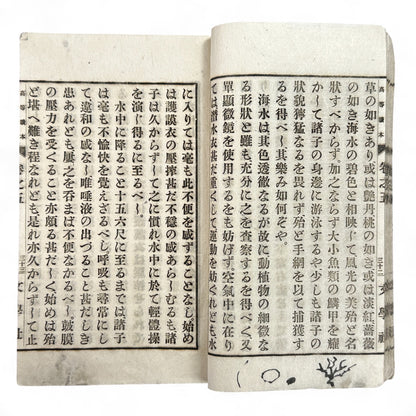 草の如きあり或は艶丹桃の如き或は淡紅薔薇
の如き海水の碧色と相映じて風光の美殆と名
狀すべからず、加之ならず大小魚類の鱗甲を耀
かして諸子の身邊に游泳するや少しも諸子の
狀貌獰猛なるを畏れず殆ど手網を以て捕獲す
るを得べし其樂み如何ぞや。
海水は其色透徹なるが故に動植物の細微な
る形狀と雖も充分に之を查察するを得べく又
單顯微鏡を使用するをも妨げず、空氣中に在り
ては潛水衣甚だ重くして運動を妨ぐれども水
高等讀本
卷之五
三十二
文學社
に入りては毫も此不便を感ずることなし、始め
は護謨衣の壓搾甚だ不穩の感あらしむるも諸
子は久からずして之に慣れ水中に於て輕體操
を演じ得るに至るべし
水中に降ること十五六尺に至るまでは諸子
は毫も不愉快を覺えざるべし、呼吸も尋常にし
て違和の感なし唯唾液の出づること甚だしき
患あれども屢之を吞まば不便なかるべし、鼓膜
の壓力を受くること亦頗る甚だしく始めは殆
ど堪へ難き程なれども是れ亦久からずして止
高等讀本
卷之五
三十三
文學社